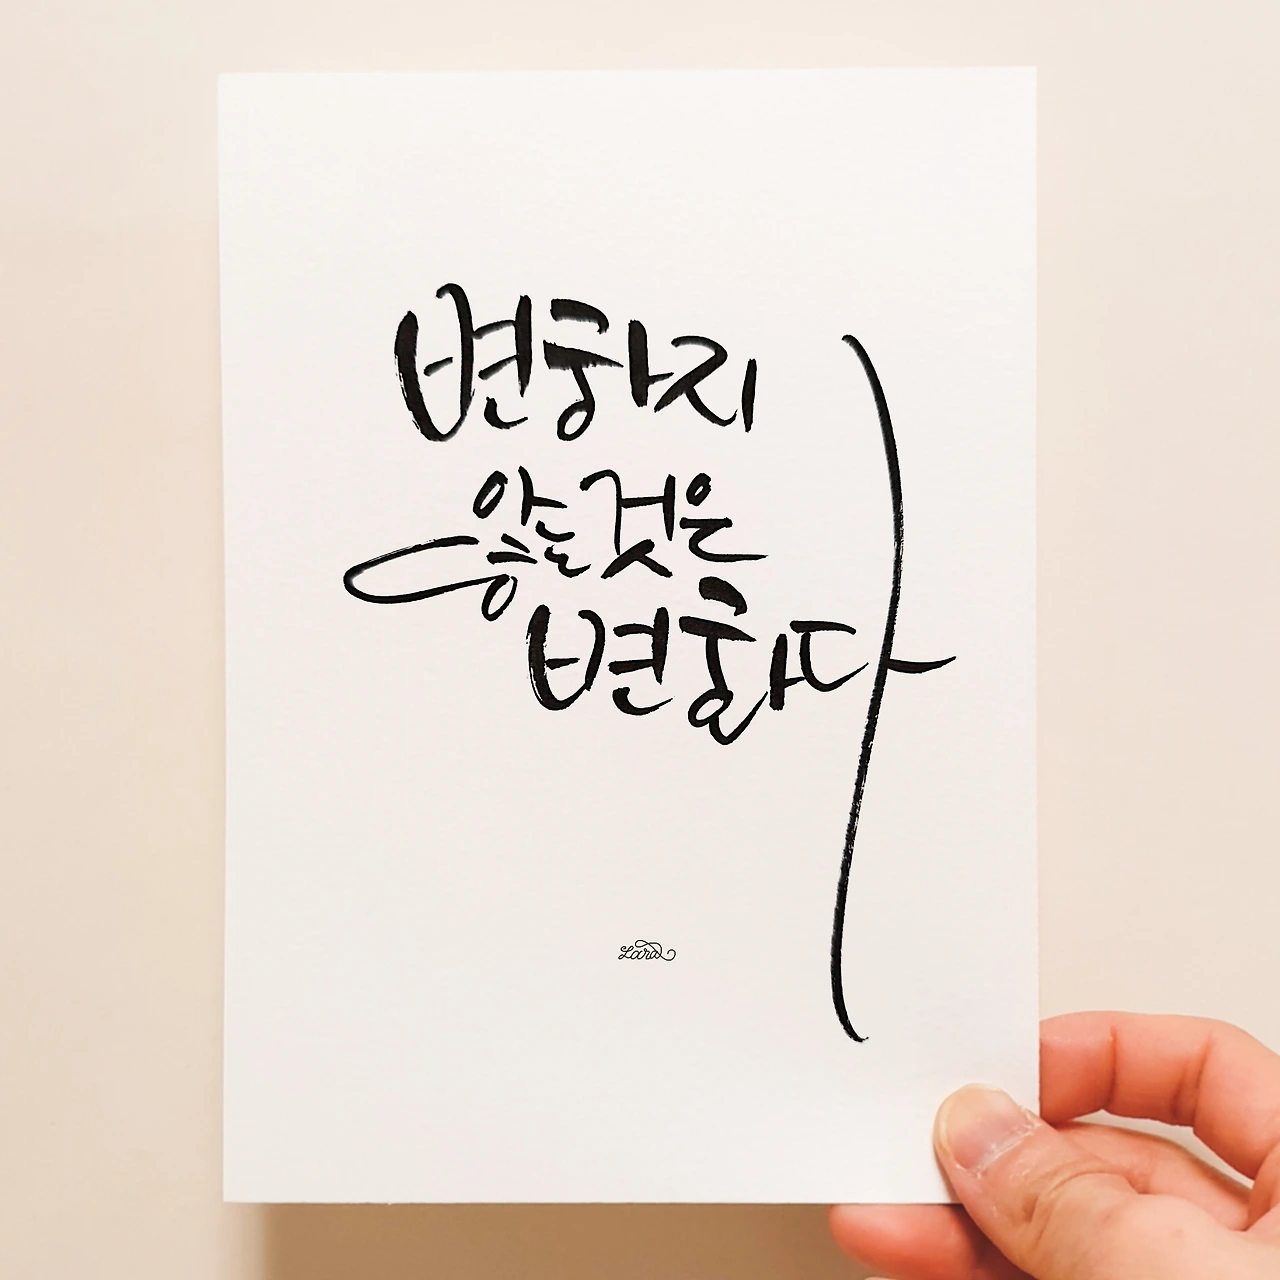 변하지
않는 것은
변화다
Lara